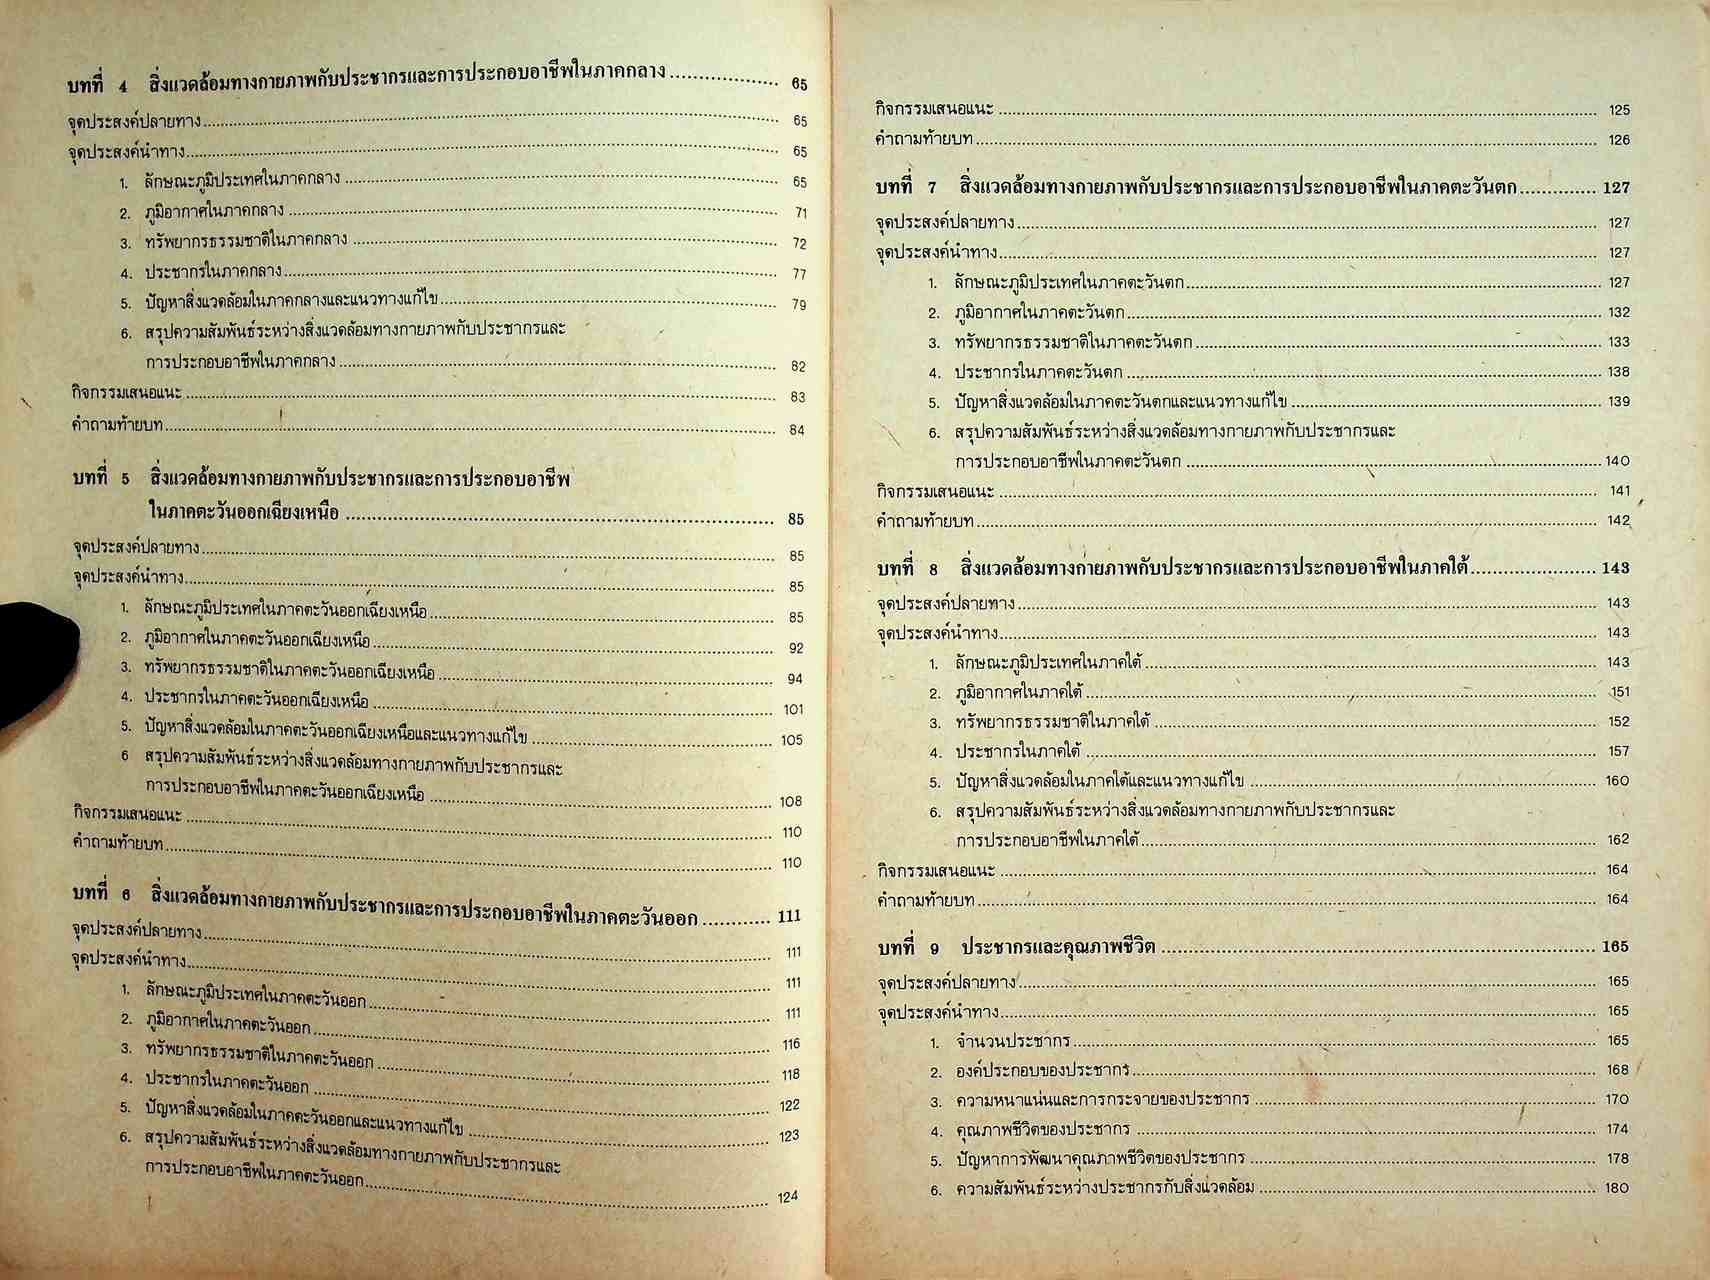 บทที่ 4 สิ่งแวดล้อมทางกายภาพกับประชากรและการประกอบอาชีพในภาคกลาง.................. 65
จุดประสงค์ปลายทาง.................. 65
จุดประสงค์นำทาง.................. 65
1. ลักษณะภูมิประเทศในภาคกลาง.................. 65
2. ภูมิอากาศในภาคกลาง.................. 71
3. ทรัพยากรธรรมชาติในภาคกลาง.................. 72
4. ประชากรในภาคกลาง.................. 77
5. ปัญหาสิ่งแวดล้อมในภาคกลางและแนวทางแก้ไข.................. 79
6. สรุปความสัมพันธ์ระหว่างสิ่งแวดล้อมทางกายภาพกับประชากรและ
การประกอบอาชีพในภาคกลาง.................. 82
กิจกรรมเสนอแนะ.................. 83
คำถามท้ายบท.................. 84
บทที่ 5 สิ่งแวดล้อมทางกายภาพกับประชากรและการประกอบอาชีพ
ในภาคตะวันออกเฉียงเหนือ.................. 85
จุดประสงค์ปลายทาง.................. 85
จุดประสงค์นำทาง.................. 85
1. ลักษณะภูมิประเทศในภาคตะวันออกเฉียงเหนือ.................. 85
2. ภูมิอากาศในภาคตะวันออกเฉียงเหนือ.................. 92
3. ทรัพยากรธรรมชาติในภาคตะวันออกเฉียงเหนือ.................. 94
4. ประชากรในภาคตะวันออกเฉียงเหนือ.................. 101
5. ปัญหาสิ่งแวดล้อมในภาคตะวันออกเฉียงเหนือและแนวทางแก้ไข.................. 105
6 สรุปความสัมพันธ์ระหว่างสิ่งแวดล้อมทางกายภาพกับประชากรและ
การประกอบอาชีพในภาคตะวันออกเฉียงเหนือ.................. 108
กิจกรรมเสนอแนะ.................. 110
คำถามท้ายบท.................. 110
บทที่ 6 สิ่งแวดล้อมทางกายภาพกับประชากรและการประกอบอาชีพในภาคตะวันออก............ 111
จุดประสงค์ปลายทาง.................. 111
จุดประสงค์นำทาง.................. 111
1. ลักษณะภูมิประเทศในภาคตะวันออก.................. 111
2. ภูมิอากาศในภาคตะวันออก.................. 116
3. ทรัพยากรธรรมชาติในภาคตะวันออก.................. 118
4. ประชากรในภาคตะวันออก.................. 122
5. ปัญหาสิ่งแวดล้อมในภาคตะวันออกและแนวทางแก้ไข.................. 123
6. สรุปความสัมพันธ์ระหว่างสิ่งแวดล้อมทางกายภาพกับประชากรและ
การประกอบอาชีพในภาคตะวันออก.................. 124
กิจกรรมเสนอแนะ.................. 125
คำถามท้ายบท.................. 126
บทที่ 7 สิ่งแวดล้อมทางกายภาพกับประชากรและการประกอบอาชีพในภาคตะวันตก............. 127
จุดประสงค์ปลายทาง.................. 127
จุดประสงค์นำทาง.................. 127
1. ลักษณะภูมิประเทศในภาคตะวันตก.................. 127
2. ภูมิอากาศในภาคตะวันตก.................. 132
3. ทรัพยากรธรรมชาติในภาคตะวันตก.................. 133
4. ประชากรในภาคตะวันตก.................. 138
5. ปัญหาสิ่งแวดล้อมในภาคตะวันตกและแนวทางแก้ไข.................. 139
6. สรุปความสัมพันธ์ระหว่างสิ่งแวดล้อมทางกายภาพกับประชากรและ
การประกอบอาชีพในภาคตะวันตก.................. 140
กิจกรรมเสนอแนะ.................. 141
คำถามท้ายบท.................. 142
บทที่ 8 สิ่งแวดล้อมทางกายภาพกับประชากรและการประกอบอาชีพในภาคใต้.................. 143
จุดประสงค์ปลายทาง.................. 143
จุดประสงค์นำทาง.................. 143
1. ลักษณะภูมิประเทศในภาคใต้.................. 143
2. ภูมิอากาศในภาคใต้.................. 151
3. ทรัพยากรธรรมชาติในภาคใต้.................. 152
4. ประชากรในภาคใต้.................. 157
5. ปัญหาสิ่งแวดล้อมในภาคใต้และแนวทางแก้ไข.................. 160
6. สรุปความสัมพันธ์ระหว่างสิ่งแวดล้อมทางกายภาพกับประชากรและ
การประกอบอาชีพในภาคใต้.................. 162
กิจกรรมเสนอแนะ.................. 164
คำถามท้ายบท.................. 164
บทที่ 9 ประชากรและคุณภาพชีวิต.................. 165
จุดประสงค์ปลายทาง.................. 165
จุดประสงค์นำทาง.................. 165
1. จำนวนประชากร.................. 165
2. องค์ประกอบของประชากร.................. 168
3. ความหนาแน่นและการกระจายของประชากร.................. 170
4. คุณภาพชีวิตของประชากร.................. 174
5. ปัญหาการพัฒนาคุณภาพชีวิตของประชากร.................. 178
6. ความสัมพันธ์ระหว่างประชากรกับสิ่งแวดล้อม.................. 180